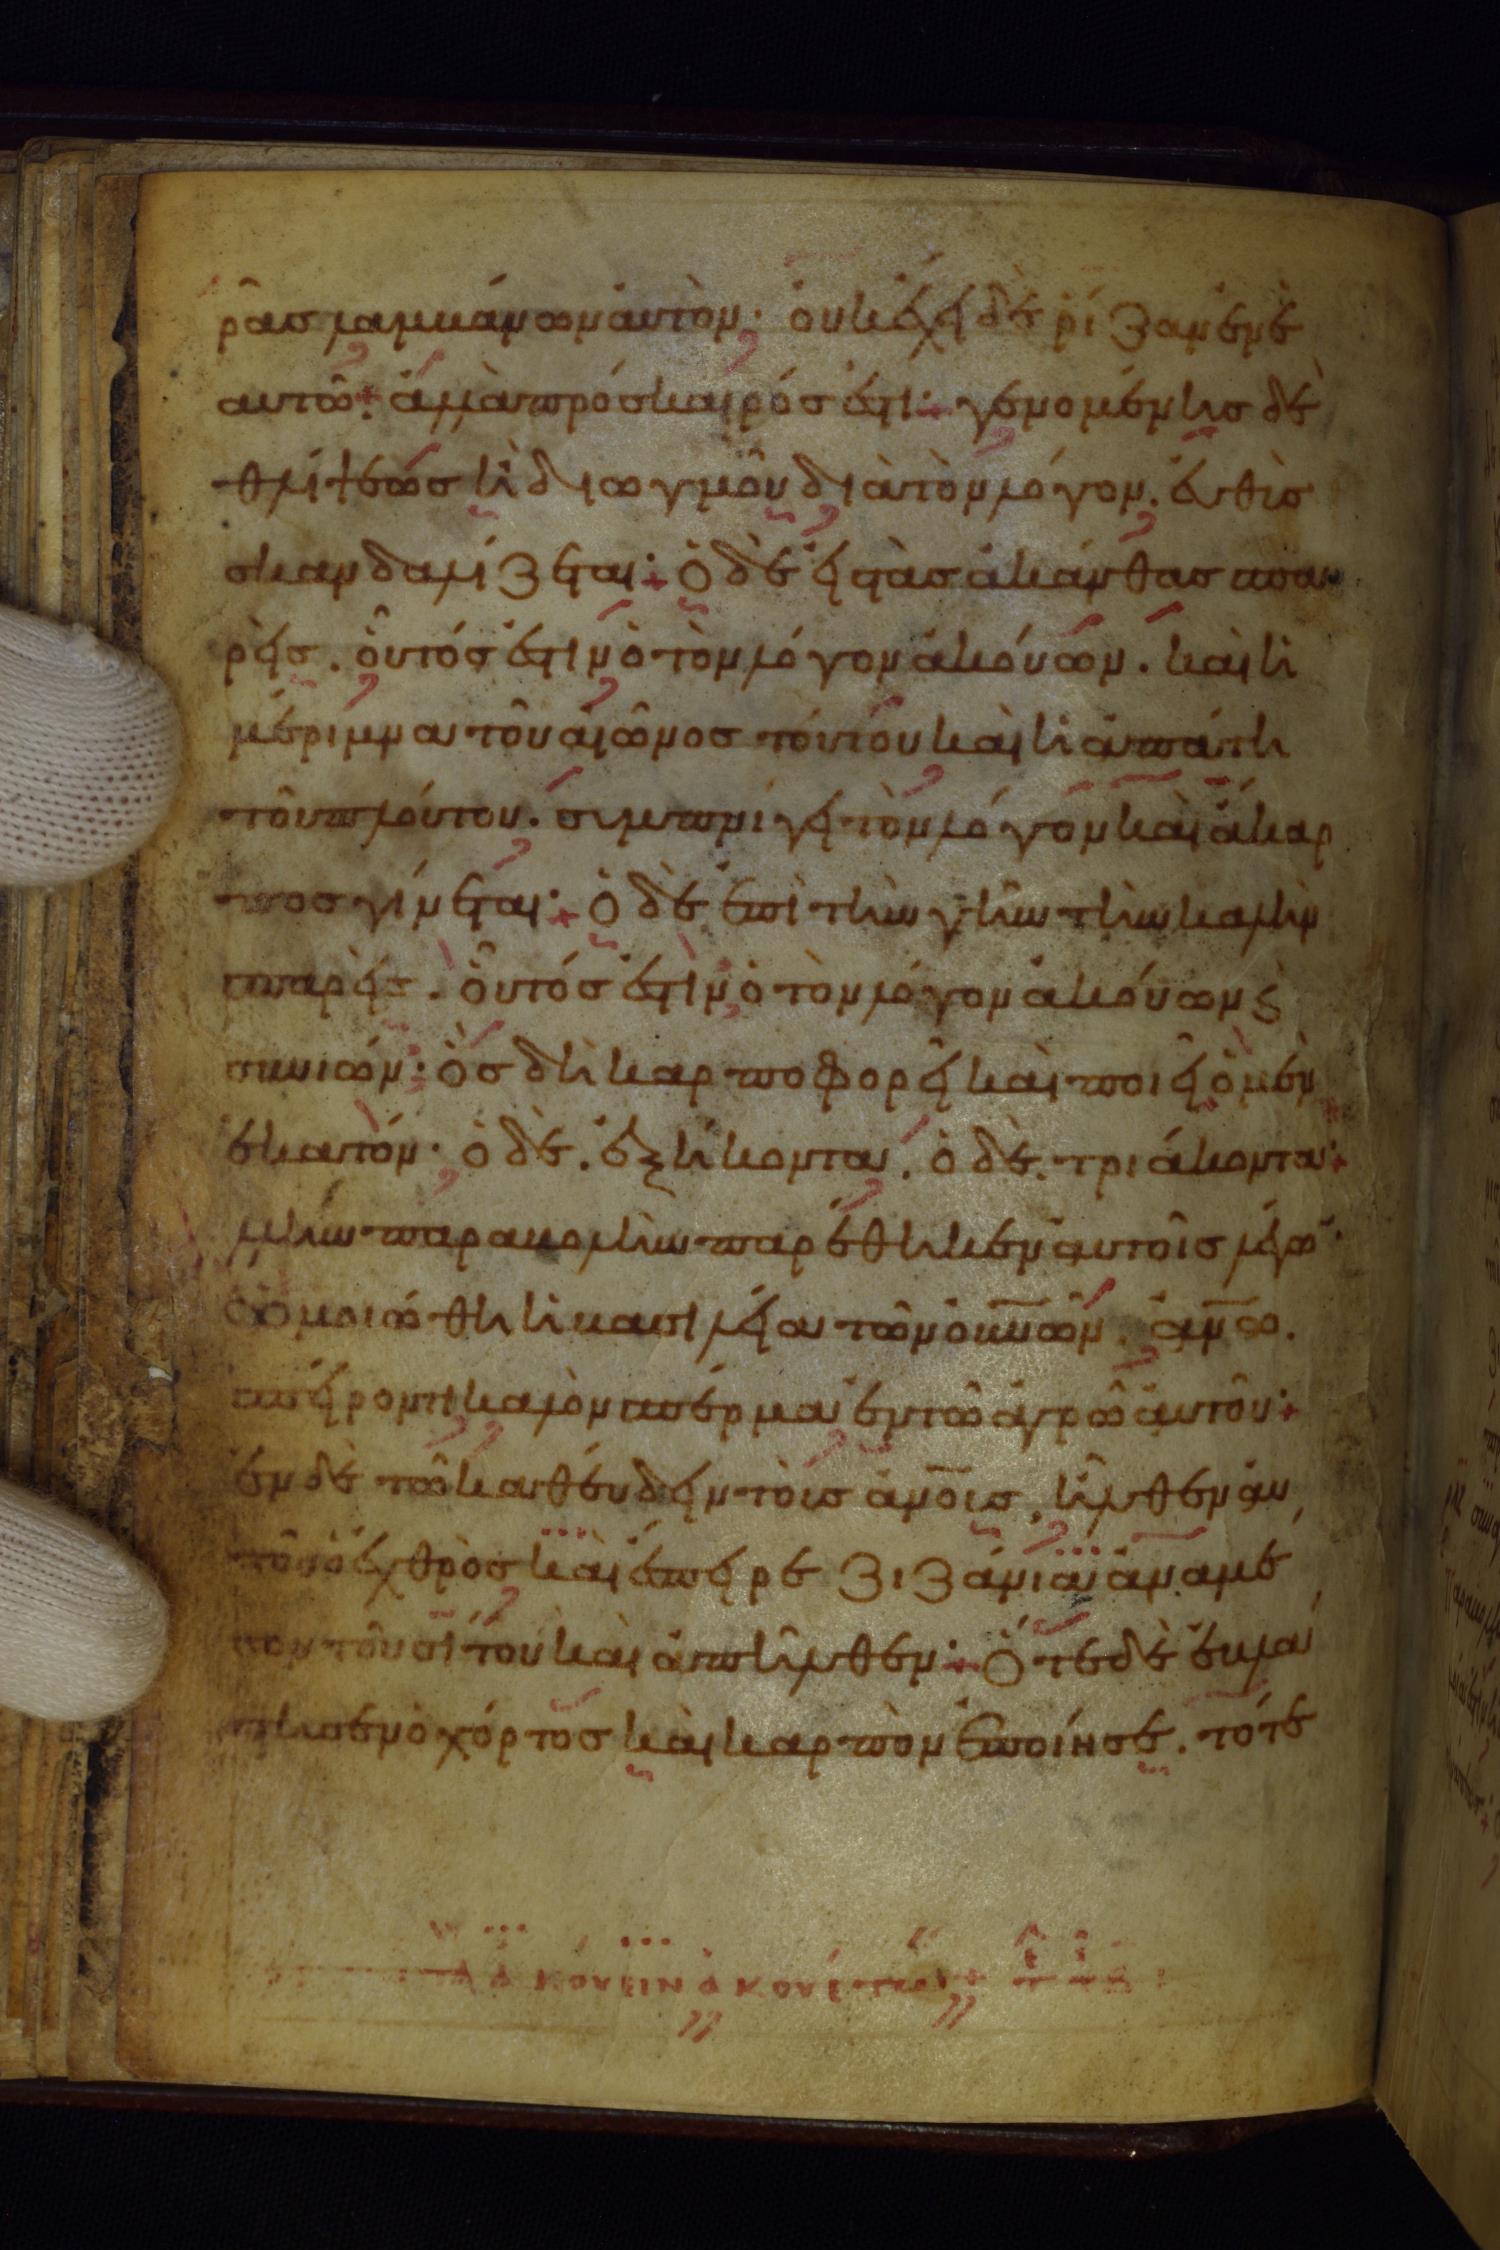 ρᾶς λαμβάνων ἀυτὸν· οὐκ ἔχει δὲ ῥίζαν ἐν ἑ
αυτῶ· ἀλλὰ πρόσκαιρός ἐστι· γενομένης δὲ
θλίψεως ἢ διωγμοῦ διὰ τὸν λόγον. ἐυθὺς
σκανδαλίζεται· Ὁ δὲ εἰς τὰς ἀκάνθας σπα
ρεὶς. οὗτός ἐστιν ὁ τὸν λόγον ἀκούων. καὶ ἡ
μέριμνα τοῦ αἰῶνος τούτου καὶ ἡ ἀπάτη
τοῦ πλούτου. συμπνίγει τὸν λόγον καὶ ἄκαρ
πος γίνεται· Ὁ δὲ ἐπὶ τὴν γῆν τὴν καλὴν
σπαρεὶς. οὗτός ἐστιν ὁ τὸν λόγον ἀκούων ϗ
συνιών· ὃς δὴ καρποφορεῖ καὶ ποιεῖ ὁ μὲν
ἑκατόν· ὁ δὲ. ἑξήκοντα. ὁ δὲ. τριάκοντα·
λην παραβολὴν παρέθηκεν αὐτοῖς λέγω·
Ὡμοιώθη ἡ βασιλεία τῶν οὐνων. ἀνω.
σπείροντι καλὸν σπέρμα ἐν τῶ ἀγρῶ ἀυτοῦ·
ἐν δὲ τῶ καθεύδειν τοὺς ἀνους, ἦλθεν αυ
τοῦ ὁ ἐχθρὸς καὶ ἔσπειρε ζιζάνια ἀνὰ μέ
σον τοῦ σίτου καὶ ἀπῆλθεν· Ὅτε δὲ ἐβλά
στησεν ὁ χόρτος καὶ καρπὸν ἐποίησε. τότε
ἀκούειν ἀκουέτω